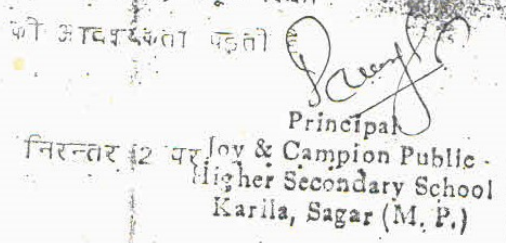 की आवश्यकता पड़ती
Principal
निरन्तर 2 पर Joy & Campion Public
Higher Secondary School
Karila, Sagar (M. P.)